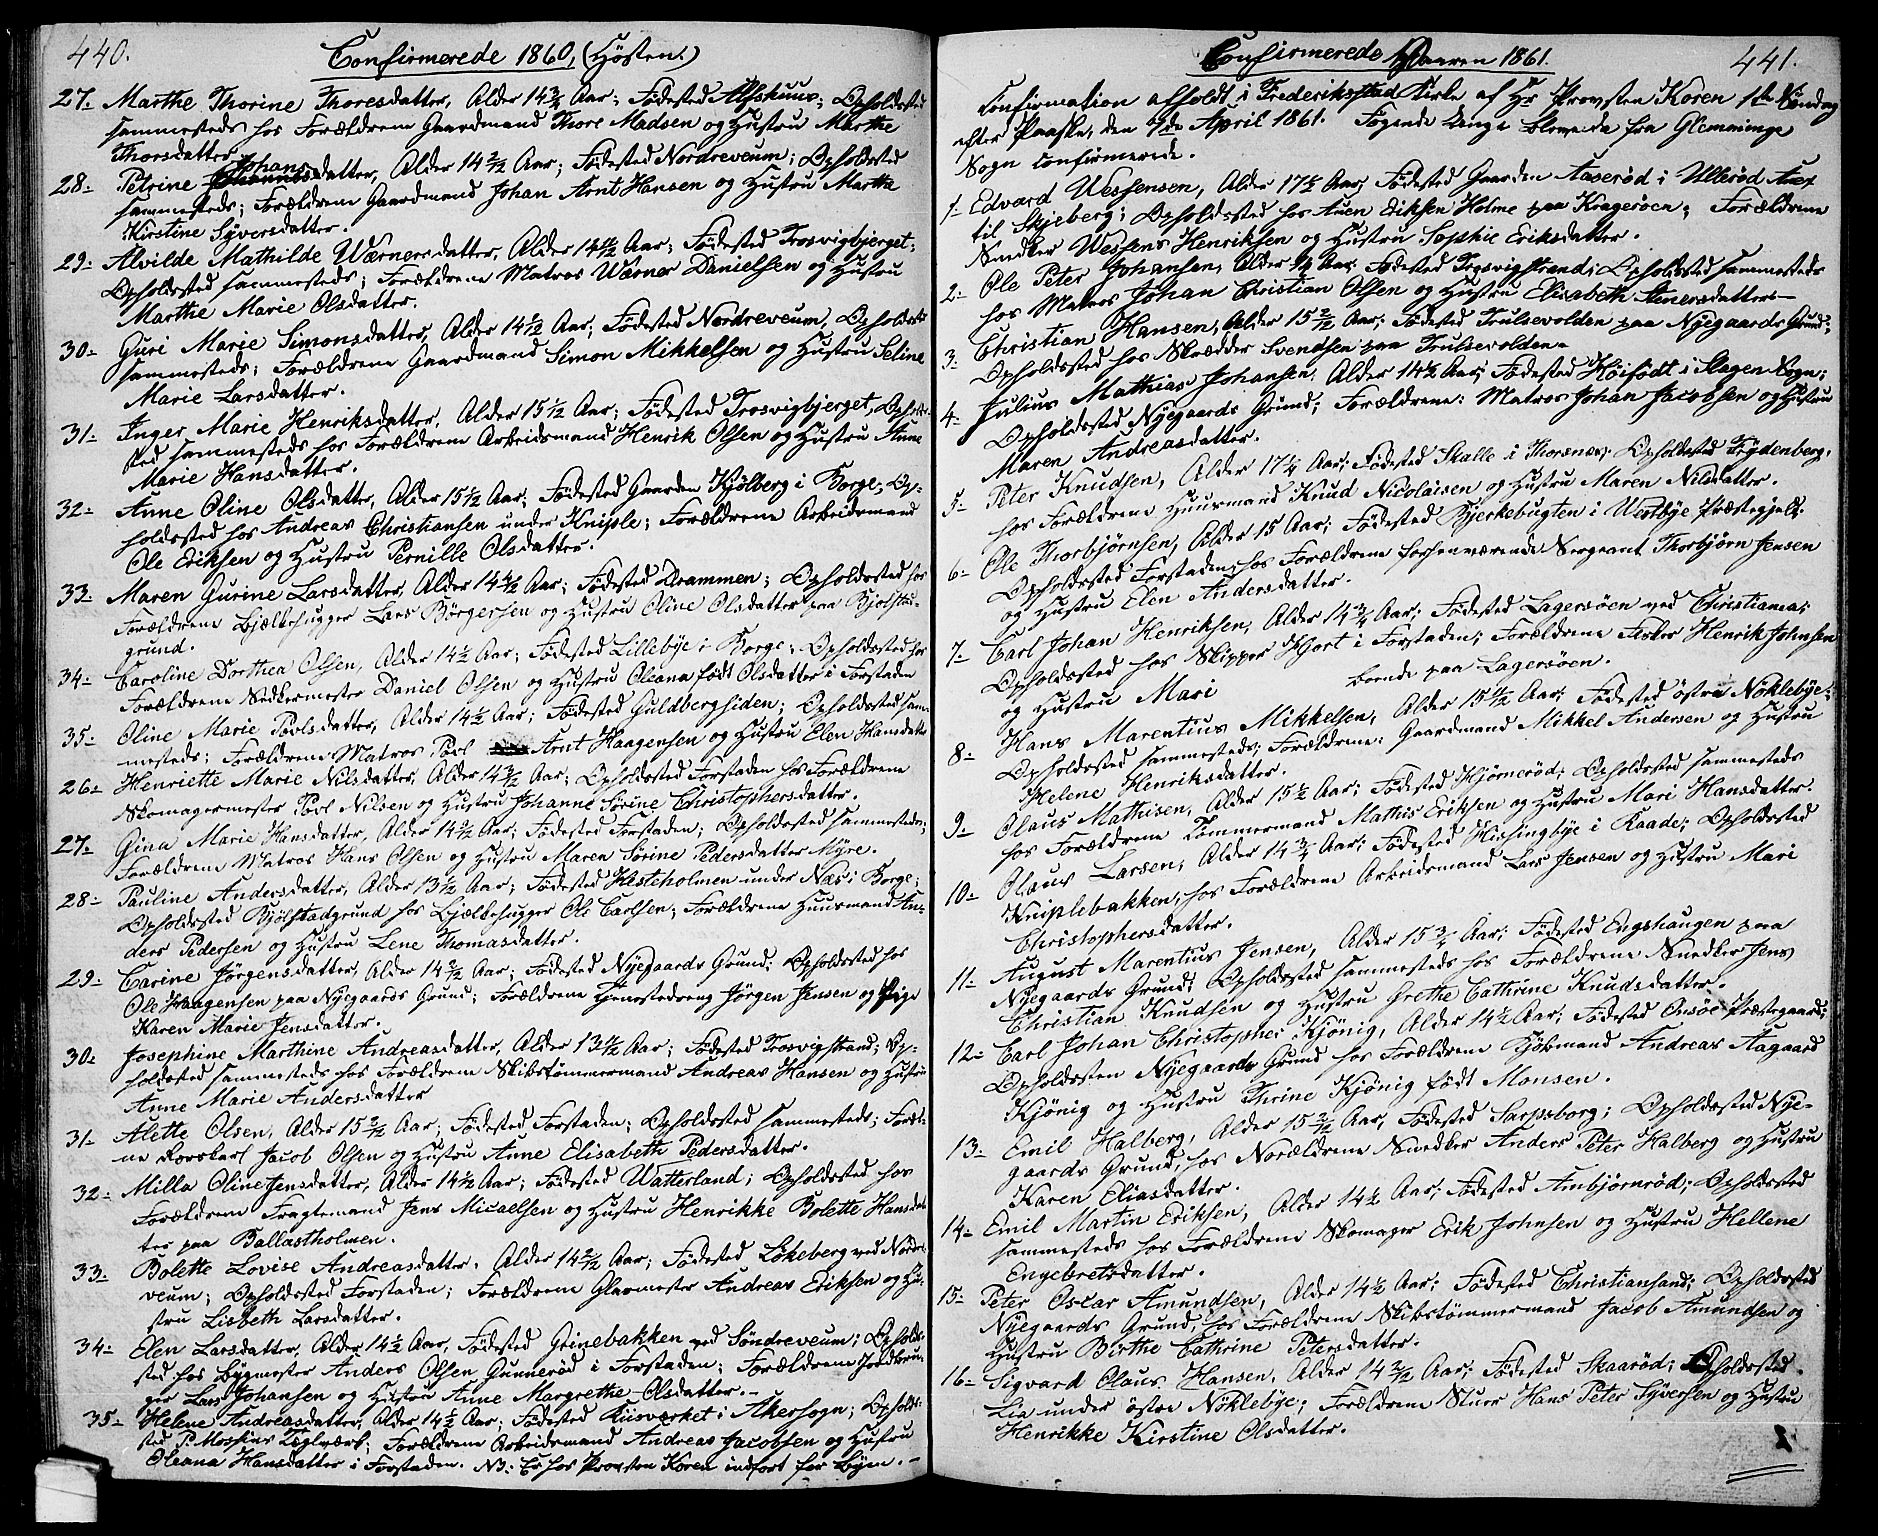 440.
Confirmerede 1860, (Høsten.)
27. Marthe Thorine Thoresdatter, Alder 14 3/4 Aar; Fødested Alfskuur; Opholdssted
sammesteds hos Forældrene Gaardmand Thore Madsen og Hustru Marthe
Thorsdatter.
28. Petrine Johansdatter, Alder 14 2/12 Aar; Fødested Nordreveum; Opholdssted
sammesteds; Forældrene Gaardmand Johan Arnt Hansen og Hustru Marthe
Kirstine Syversdatter.
29. Alvilde Mathilde Wærnersdatter, Alder 14 1/2 Aar; Fødested Trosvigbjerget;
Opholdssted sammesteds; Forældrene Matros Wærner Danielsen og Hustru
Marthe Marie Olsdatter.
30. Guri Marie Simonsdatter, Alder 14 5/12 Aar; Fødested Nordreveum, Opholdsst
sammesteds; Forældrene Gaardmand Simon Mikkelsen og Hustru Seline
Marie Larsdatter.
31. Inger Marie Henriksdatter, Alder 15 1/2 Aar; Fødested Trosvigbjerget, Opholds-
sted sammesteds hos Forældrene Arbeidsmand Henrik Olsen og Hustru Anne
Marie Hansdatter.
32. Anne Oline Olsdatter, Alder 15 1/2 Aar; Fødested Gaarden Kjölberg i Borge; Op-
holdssted hos Andreas Christiansen under Kniple; Forældrene Arbeidsmand
Ole Eriksen og Hustru Pernille Olsdatter.
33. Maren Gurine Larsdatter, Alder 14 Aar; Fødested Drammen; Opholdssted hos
Forældrene Bjælkehugger Lars Børgersen og Hustru Oline Olsdatter paa Kjølstad-
grund.
34. Caroline Dorthea Olsen, Alder 14 1/2 Aar; Fødested Lillebye i Borge; Opholdssted hos
Forældrene Snedkermester Daniel Olsen og Hustru Oleana født Olsdatter i Forstaden
35. Oline Marie Povlsdatter, Alder 14 1/2 Aar; Fødested Guldbergsiden; Opholdssted sam-
mesteds; Forældrene Matros Povl Arnt Haagensen og Hustru Elen Hansdatter
26. Henriette Marie Nilsdatter, Alder 14 3/12 Aar; Opholdssted Forstaden hos Forældrene
Skomagermester Povl Nilsen og Hustru Johanne Sirine Christophersdatter.
27. Gina Marie Hansdatter, Alder 14 Aar; Fødested Forstaden; Opholdssted sammesteds;
Forældrene Matros Hans Olsen og Hustru Maren Sørine Pedersdatter Myre.
28. Pauline Andersdatter, Alder 13 1/2 Aar; Fødested Hesteholmen under Næs i Borge;
Opholdssted Kjølstadgrund hos Bjælkehugger Ole Carlsen; Forældrene Huusmand An-
ders Pedersen og Hustru Lene Thomasdatter.
29. Carine Jørgensdatter, Alder 14 2/12 Aar; Fødested Nyegaards Grund; Opholdssted hos
Ole Haagensen paa Nyegaards Grund; Forældrene Tjenestedreng Jørgen Jensen og Pige
Karen Marie Jensdatter.
30. Josephine Marthine Andreasdatter, Alder 13 Aar; Fødested Trosvigstrand; Op-
holdssted sammesteds hos Forældrene Skibstømmermand Andreas Hansen og Hustru
Anne Marie Andersdatter
31. Alette Olsen, Alder 15 2/12 Aar; Fødested Forstaden; Opholdssted sammesteds; Foræl-
ne Rorskarl Jacob Olsen og Hustru Anne Elisabeth Pedersdatter.
32. Milla Oline Jensdatter, Alder 14 1/2 Aar; Fødested Watterland; Opholdssted hos
Forældrene Fragtemand Jens Micaelsen og Hustru Henrikke Bolette Hansdat
ter paa Ballastholmen.
33. Bolette Lovise Andreasdatter, Alder 14 2/12 Aar; Fødested Løkeberg ved Nordre-
veum; Opholdssted Forstaden; Forældrene Glarmester Andreas Eriksen og Hu-
stru Lisbeth Larsdatter.
34. Elen Larsdatter, Alder 14 1/2 Aar, Fødested Grinebakken ved Söndreveum; Opholds-
sted hos Bygmester Anders Olsen Gunnerød i Forstaden; Forældrene Jordbru-
ger Lars Johansen og Hustru Anne Margrethe Olsdatter.
35. Helene Andreasdatter, Alder 14 1/2 Aar; Fødested i Akersogn; Opholds-
sted P. Mossins Teglværk; Forældrene Arbeidsmand Andreas Jacobsen og Hustru
Oleana Hansdatter i Forstaden. NB: Er hos Provsten Koren indført for Byen.
441.
Confirmerede Vaaren 1861.
Confirmation afholdt i Frederikstad Kirke af Hr Provsten Koren 1ste Søndag
efter Paaske, den 7de April 1861. Følgende Unge bleve da fra Glemminge
Sogn confirmerede.
1. Edvard Wessensen, Alder 17 1/2 Aar; Fødested Gaarden Aaserød i Ullerød Anex
til Skjeberg; Opholdssted hos Auen Eriksen Holme paa Kragerøen; Forældrene
Snedker Wessens Henriksen og Hustru Sophie Eriksdatter.
2. Ole Peter Johansen, Alder Aar, Fødested Trosvigstrand; Opholdssted sammesteds
hos Matros Johan Christian Olsen og Hustru Elisabeth Stenersdatter.
3. Christian Hansen, Alder 15 2/12 Aar; Fødested Trulsevolden paa Nyegaards Grund;
Opholdssted hos Skrædder Svendsen paa Trulsevolden.
4. Julius Mathias Johansen, Alder 14 1/2 Aar; Fødested Høifødt i Slagen Sogn;
Opholdssted Nyegaards Grund; Forældrene: Matros Johan Jacobsen og Hustru
Maren Andreasdatter.
5. Peter Knudsen, Alder 17 1/4 Aar; Fødested Skalle i Thorsnes; Opholdssted Frydenberg,
hos Forældrene Huusmand Knud Nicolaisen og Hustru Maren Nilsdatter.
6. Ole Thorbjørnsen, Alder 15 Aar; Fødested Bjerkebugten i Westbye Præstegjeld;
Opholdssted Forstaden, hos Forældrene forhenværende Sergeant Thorbjørn Jensen
og Hustru Elen Andersdatter.
7. Carl Johan Henriksen, Alder 14 3/4 Aar; Fødested Lagersøen ved Christiania;
Opholdssted hos Skipper Hjort i Forstaden; Forældrene Fisker Henrik Johnsen
og Hustru Mari boende paa Lagersøen.
8. Hans Marentius Mikkelsen, Alder 15 1/2 Aar; Fødested østre Nøklebye;
Opholdssted sammesteds; Forældrene: Gaardmand Mikkel Andersen og Hustru
Helene Henriksdatter.
9. Olaus Mathisen, Alder 15 1/2 Aar; Fødested Kjørnerød; Opholdssted sammesteds
hos Forældrene Tømmermand Mathis Eriksen og Hustru Mari Hansdatter.
10. Olaus Larsen, Alder 14 3/4 Aar; Fødested Hissingbye i Raade; Opholdssted
Kniplebakken, hos Forældrene Arbeidsmand Lars Jensen og Hustru Mari
Christophersdatter.
11. August Marentius Jensen, Alder 15 3/4 Aar; Fødested Engshaugen paa
Nyegaards Grund; Opholdssted sammesteds hos Forældrene Snedker Jens
Christian Knudsen og Hustru Grethe Cathrine Knudsdatter.
12. Carl Johan Christopher Kjönig, Alder 14 1/2 Aar; Fødested Onsøe Præstegaard;
Opholdssten Nyegaards Grund hos Forældrene Kjøbmand Andreas Aagaard
Kjönig og Hustru Thrine Kjönig født Monsen.
13. Emil Halberg, Alder 15 2/12 Aar, Fødested Sarpsborg; Opholdssted Nye-
gaards Grund, hos Forældrene Snedker Anders Peter Halberg og Hustru
Karen Eliasdatter.
14. Emil Martin Eriksen, Alder 14 1/2 Aar; Fødested Ambjørnrød; Opholdssted
sammesteds hos Forældrene Skomager Erik Johnsen og Hustru Hellene
Engebretsdatter.
15. Peter Oscar Amundsen, Alder 14 1/2 Aar; Fødested Christiansand; Opholdssted
Nyegaards Grund, hos Forældrene Skibstømmermand Jacob Amundsen og
Hustru Birthe Cathrine Petersdatter.
16. Sigvard Olaus Hansen, Alder 14 2/12 Aar; Fødested Skaarød; Opholdssted
Lia under østre Nøklebye; Forældrene Sluur Hans Peter Syversen og Hustru
Henrikke Kirstine Olsdatter.